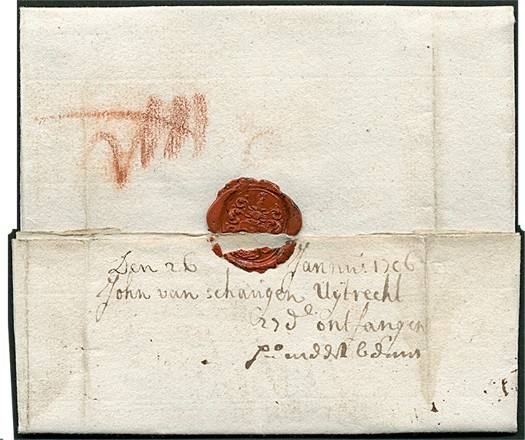 Den 26 Jannuⁱ 1756
John van schangen Uÿtrecht
27dᵉ ontfangen